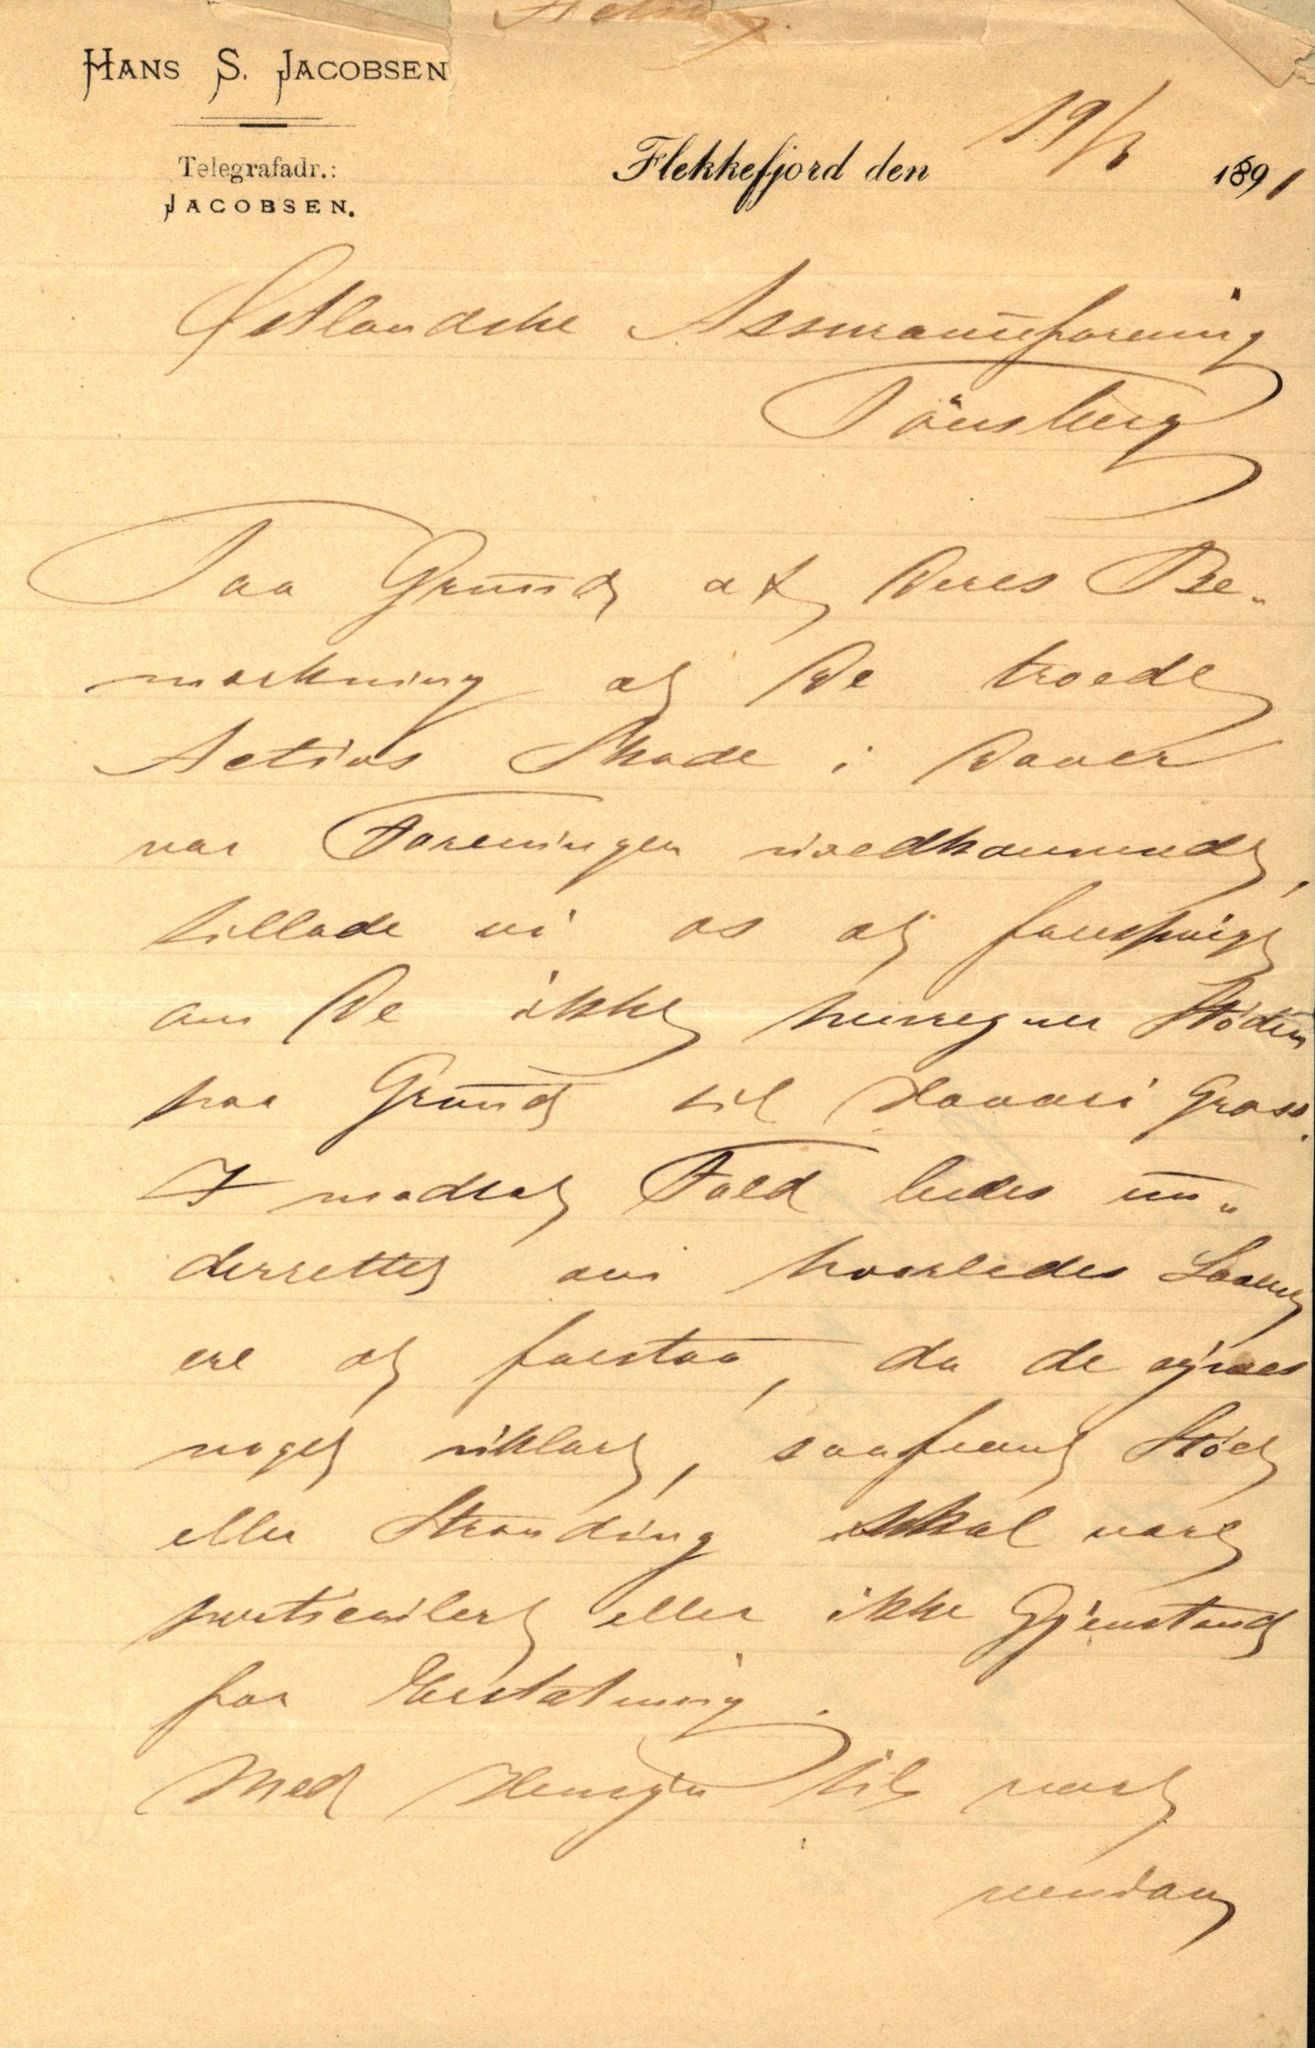 Activ.
HANS S. JACOBSEN
Telegrafadr.:
JACOBSEN.
Flekkefjord den 19/3 1891
Østlandske Assuranceforening
Tönsberg
Paa Grund af Deres Be-
mærkning at De troede
Activs Skade i Dover
var Foreningen uvedkommende,
tillade vi os at forespørge
om De ikke henregner Stöden
paa Grund til Havari Gross.
I modsat Fald bedes un-
derrettet om hvorledes Lovene
ere at forstaa, da de synes
noget uklart, saafremt Stöd
eller Stranding skal være
particulært eller ikke Gjenstand
for Erstatning.
Med Hensyn til vort